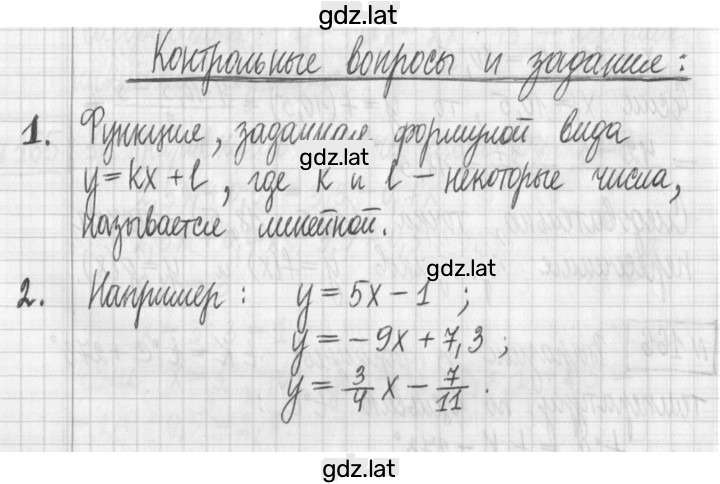 gdz.lat
Контрольные вопросы и задания:
1. Функция, заданная формулой вида
gdz.lat
y = kx + l, где k и l – некоторые числа,
называется линейной.
gdz.lat
2. Например: y = 5x – 1 ;
y = – 9x + 7,3 ;
y = 3/4 x – 7/11 .
gdz.lat